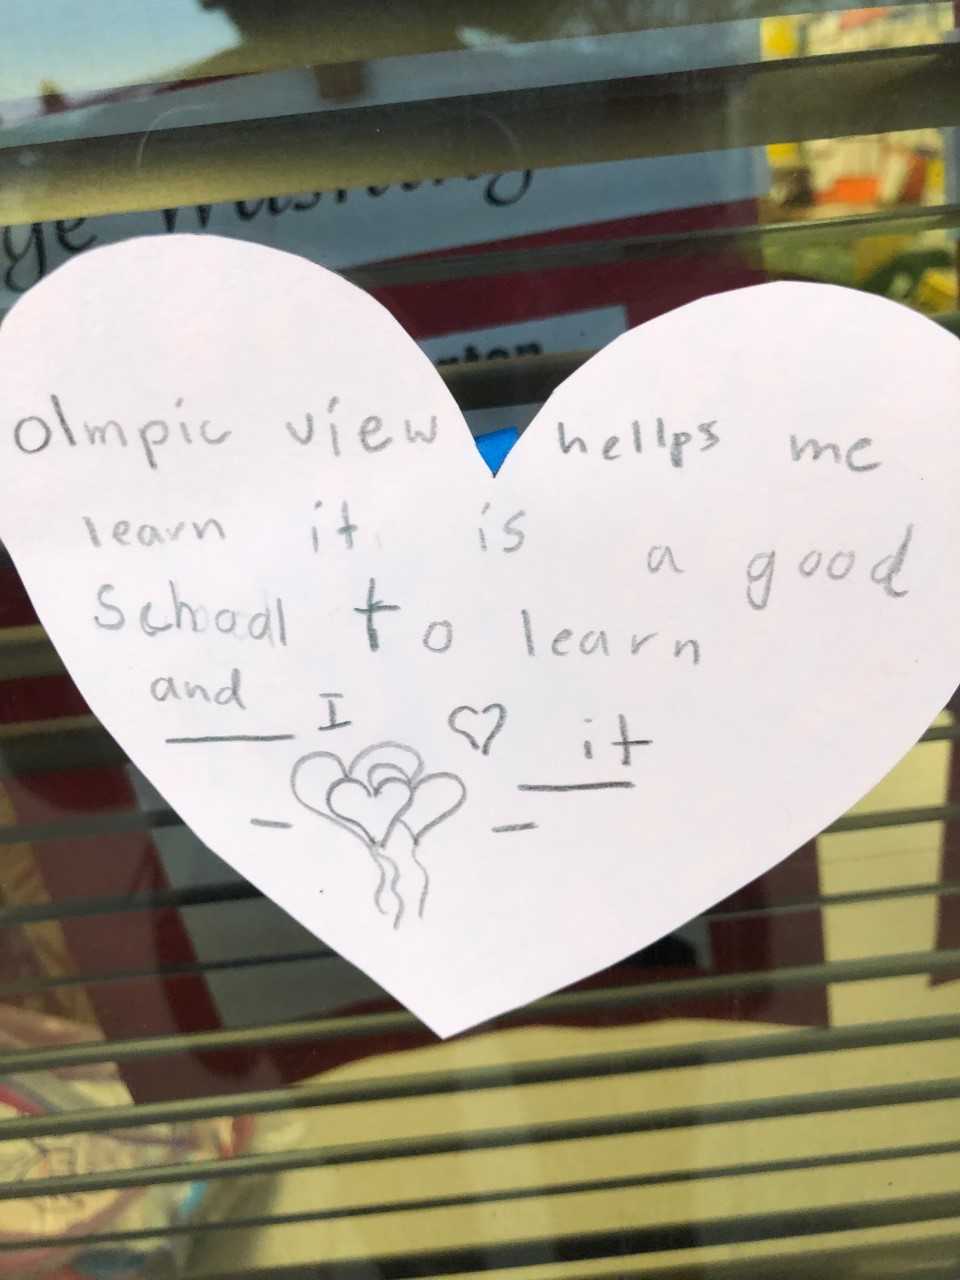 olmpic view hellps me
learn it is a good
School to learn
and I ♡ it